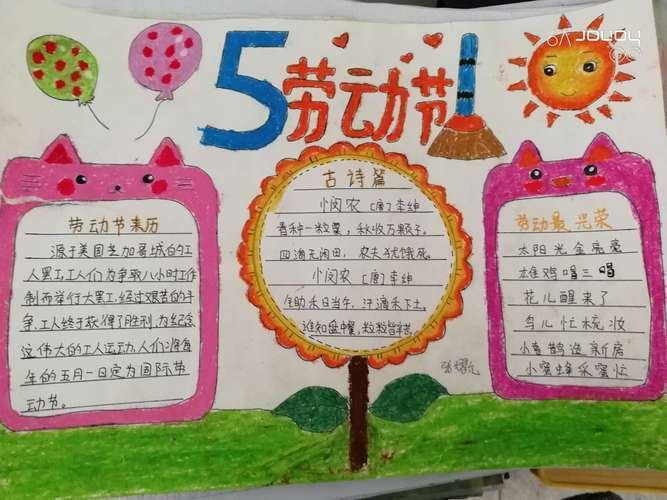 5劳动节
劳动节来历
源于美国芝加哥城的工
人罢工,工人们为争取八小时工作
制而举行大罢工,经过艰苦的斗
争,工人终于获得了胜利,为纪念
这伟大的工人运动,人们准每
年的五月一日定为国际节
动节。
古诗篇
悯农 [唐]李绅
春种一粒粟,秋收万颗子。
四海无闲田,农夫犹饿死。
悯农 [唐]李绅
锄禾日当午,汗滴禾下土
谁知盘中餐,粒粒皆辛苦
劳动最光荣
太阳光金亮亮
雄鸡唱三唱
花儿醒来了
鸟儿忙梳妆
小喜鹊造新房
小蜜蜂采蜜忙